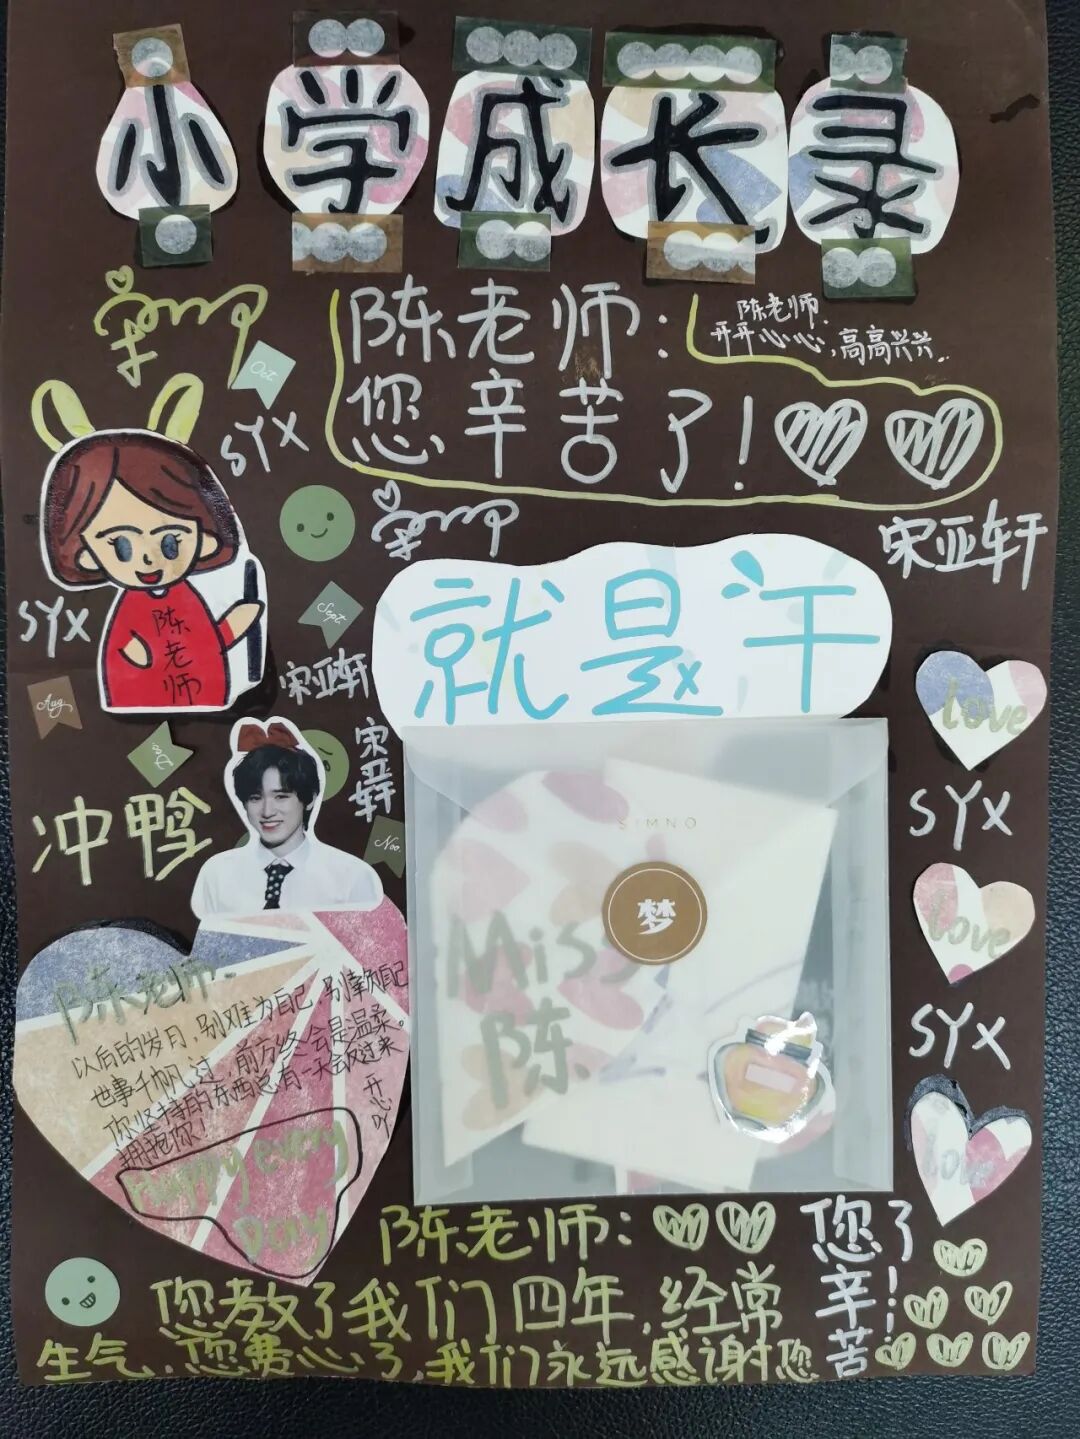 小学成长录
陈老师:
您辛苦了!
陈老师.
开开心心,高高兴兴..
Oct.
SYX
宋亚轩
就是对
SYX
陈老师
Sept.
宋亚轩
Aug.
宋亚轩
冲鸭
Nov.
SIMNO
梦
Miss
陈
love
SYX
love
SYX
love
陈老师.
以后的岁月,别难为自己,别亏欠自己
世事千帆过,前方终会是温柔。
你坚持的东西总有一天会反过来
拥抱你!
开心吖
Happy every
Day
陈老师:
您了
辛!
苦
您教了我们四年,经常
生气,您费心了,我们永远感谢您